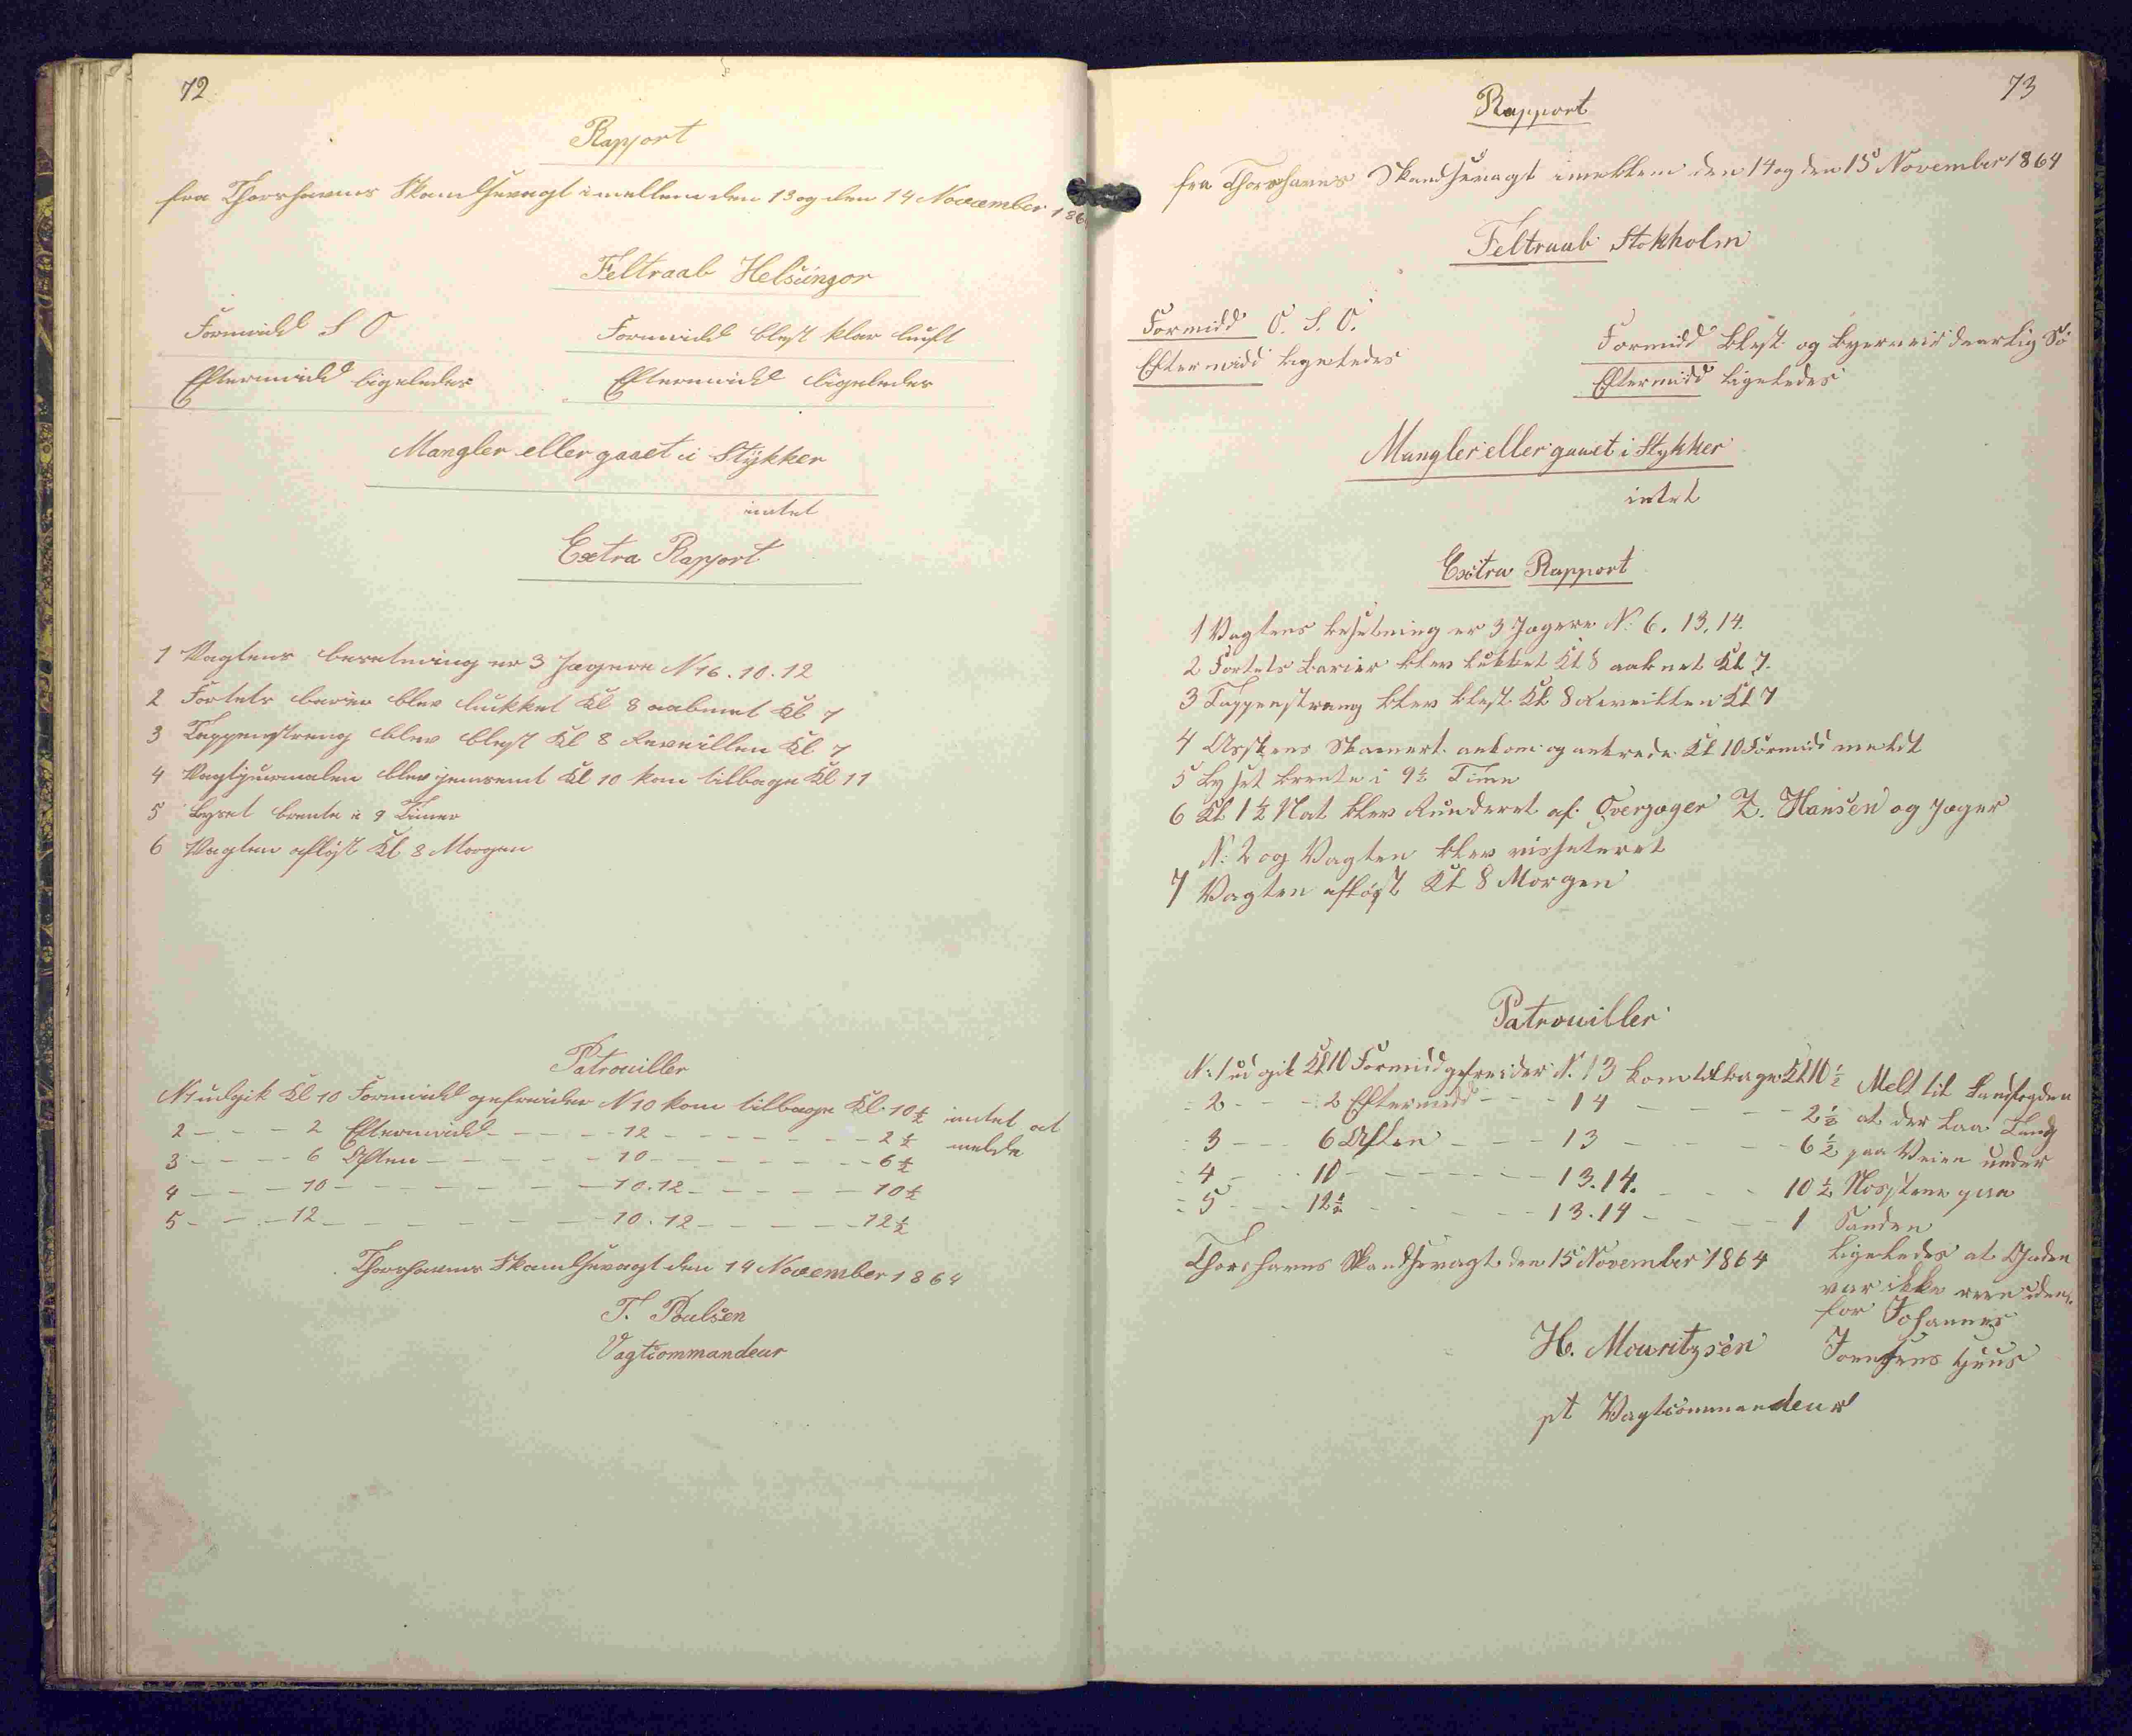 72
Rapport
fra Thorshavns Skandsevagt imellem den 13 og den 14 November 186
Feltraab Helsingør
Formidd S O
Formidd blest klar luft
Eftermidd ligeledes
Eftermidd ligeledes
Mangler eller gaaet i Stykker
intet
Extra Rapport
1 Vagtens besetning er 3 Jægere N 6. 10. 12
2 Fortets barier blev lukket Kl 8 aabnet Kl 7
3 Tappenstreng blev blest Kl 8 Reveillen Kl 7
4 Vagtjournalen blev hemsent Kl 10 kom tilbage Kl 11
5 Lyset brente i 9 Timer
6 Vagten afløst Kl 8 Morgen
Patrouiller
N1 udgik Kl 10 Formidd gefreider N 10 kom tilbage Kl. 10½ intet at
2 - - - 2 Eftermidd - - - - 12 - - - - - - - 2½ melde
3 - - - 6 Aften - - - - 10 - - - - - - - 6½
4 - - - 10 - - - - - - - 10.12 - - - - - 10½
5 - - - 12 - - - - - - - 10.12 - - - - - 12½
Thorshavns Skandsevagt den 14 November 1864
T. Poulsen
Vagtcommandeur
73
Rapport
fra Thorshavns Skandsevagt imellem den 14 og den 15 November 1864
Feltraab Stokholm
Formidd O. S. O.
Formidd blest og byerveis daarlig Sø
Eftermidd ligeledes
Eftermidd ligeledes
Mangler eller gaaet i Stykker
intet
Extra Rapport
1 Vagtens besetning er 3 Jægere N: 6. 13. 14.
2 Fortets barier blev lukket Kl 8 aabnet Kl 7.
3 Tappenstreng blev blest Kl 8 Reveillen Kl 7
4 ankom og antrede Kl 10 Formidd meldt
5 Lyset brente i 9½ Time
6 Kl 1½ Nat blev Runderet af: Overjæger Z. Hansen og Jæger
N: 2 og Vagten blev visseteret
7 Vagten afløst Kl 8 Morgen
Patrouiller
N: 1 udgik Kl 10 Formidd gefreider N: 13 kom tilbage Kl 10½ Melt til Landfogden
: 2 - - - 2 Eftermidd - - - 14 - - - - - 2½ at der laa Tang
: 3 - - - 6 Aften - - - 13 - - - - - 6½ paa Veien under
: 4 - - - 10 - - - - - 13.14. - - - 10½ paa
: 5 - - - 12½ - - - - - 13.14 - - - - 1 Sanden
Thorshavns Skandsevagt den 15 November 1864
ligeledes at Gaden
var ikke reen uden
for Johannes
H. Mouritzsen
Joensens Huus
pt Vagtcommandeur